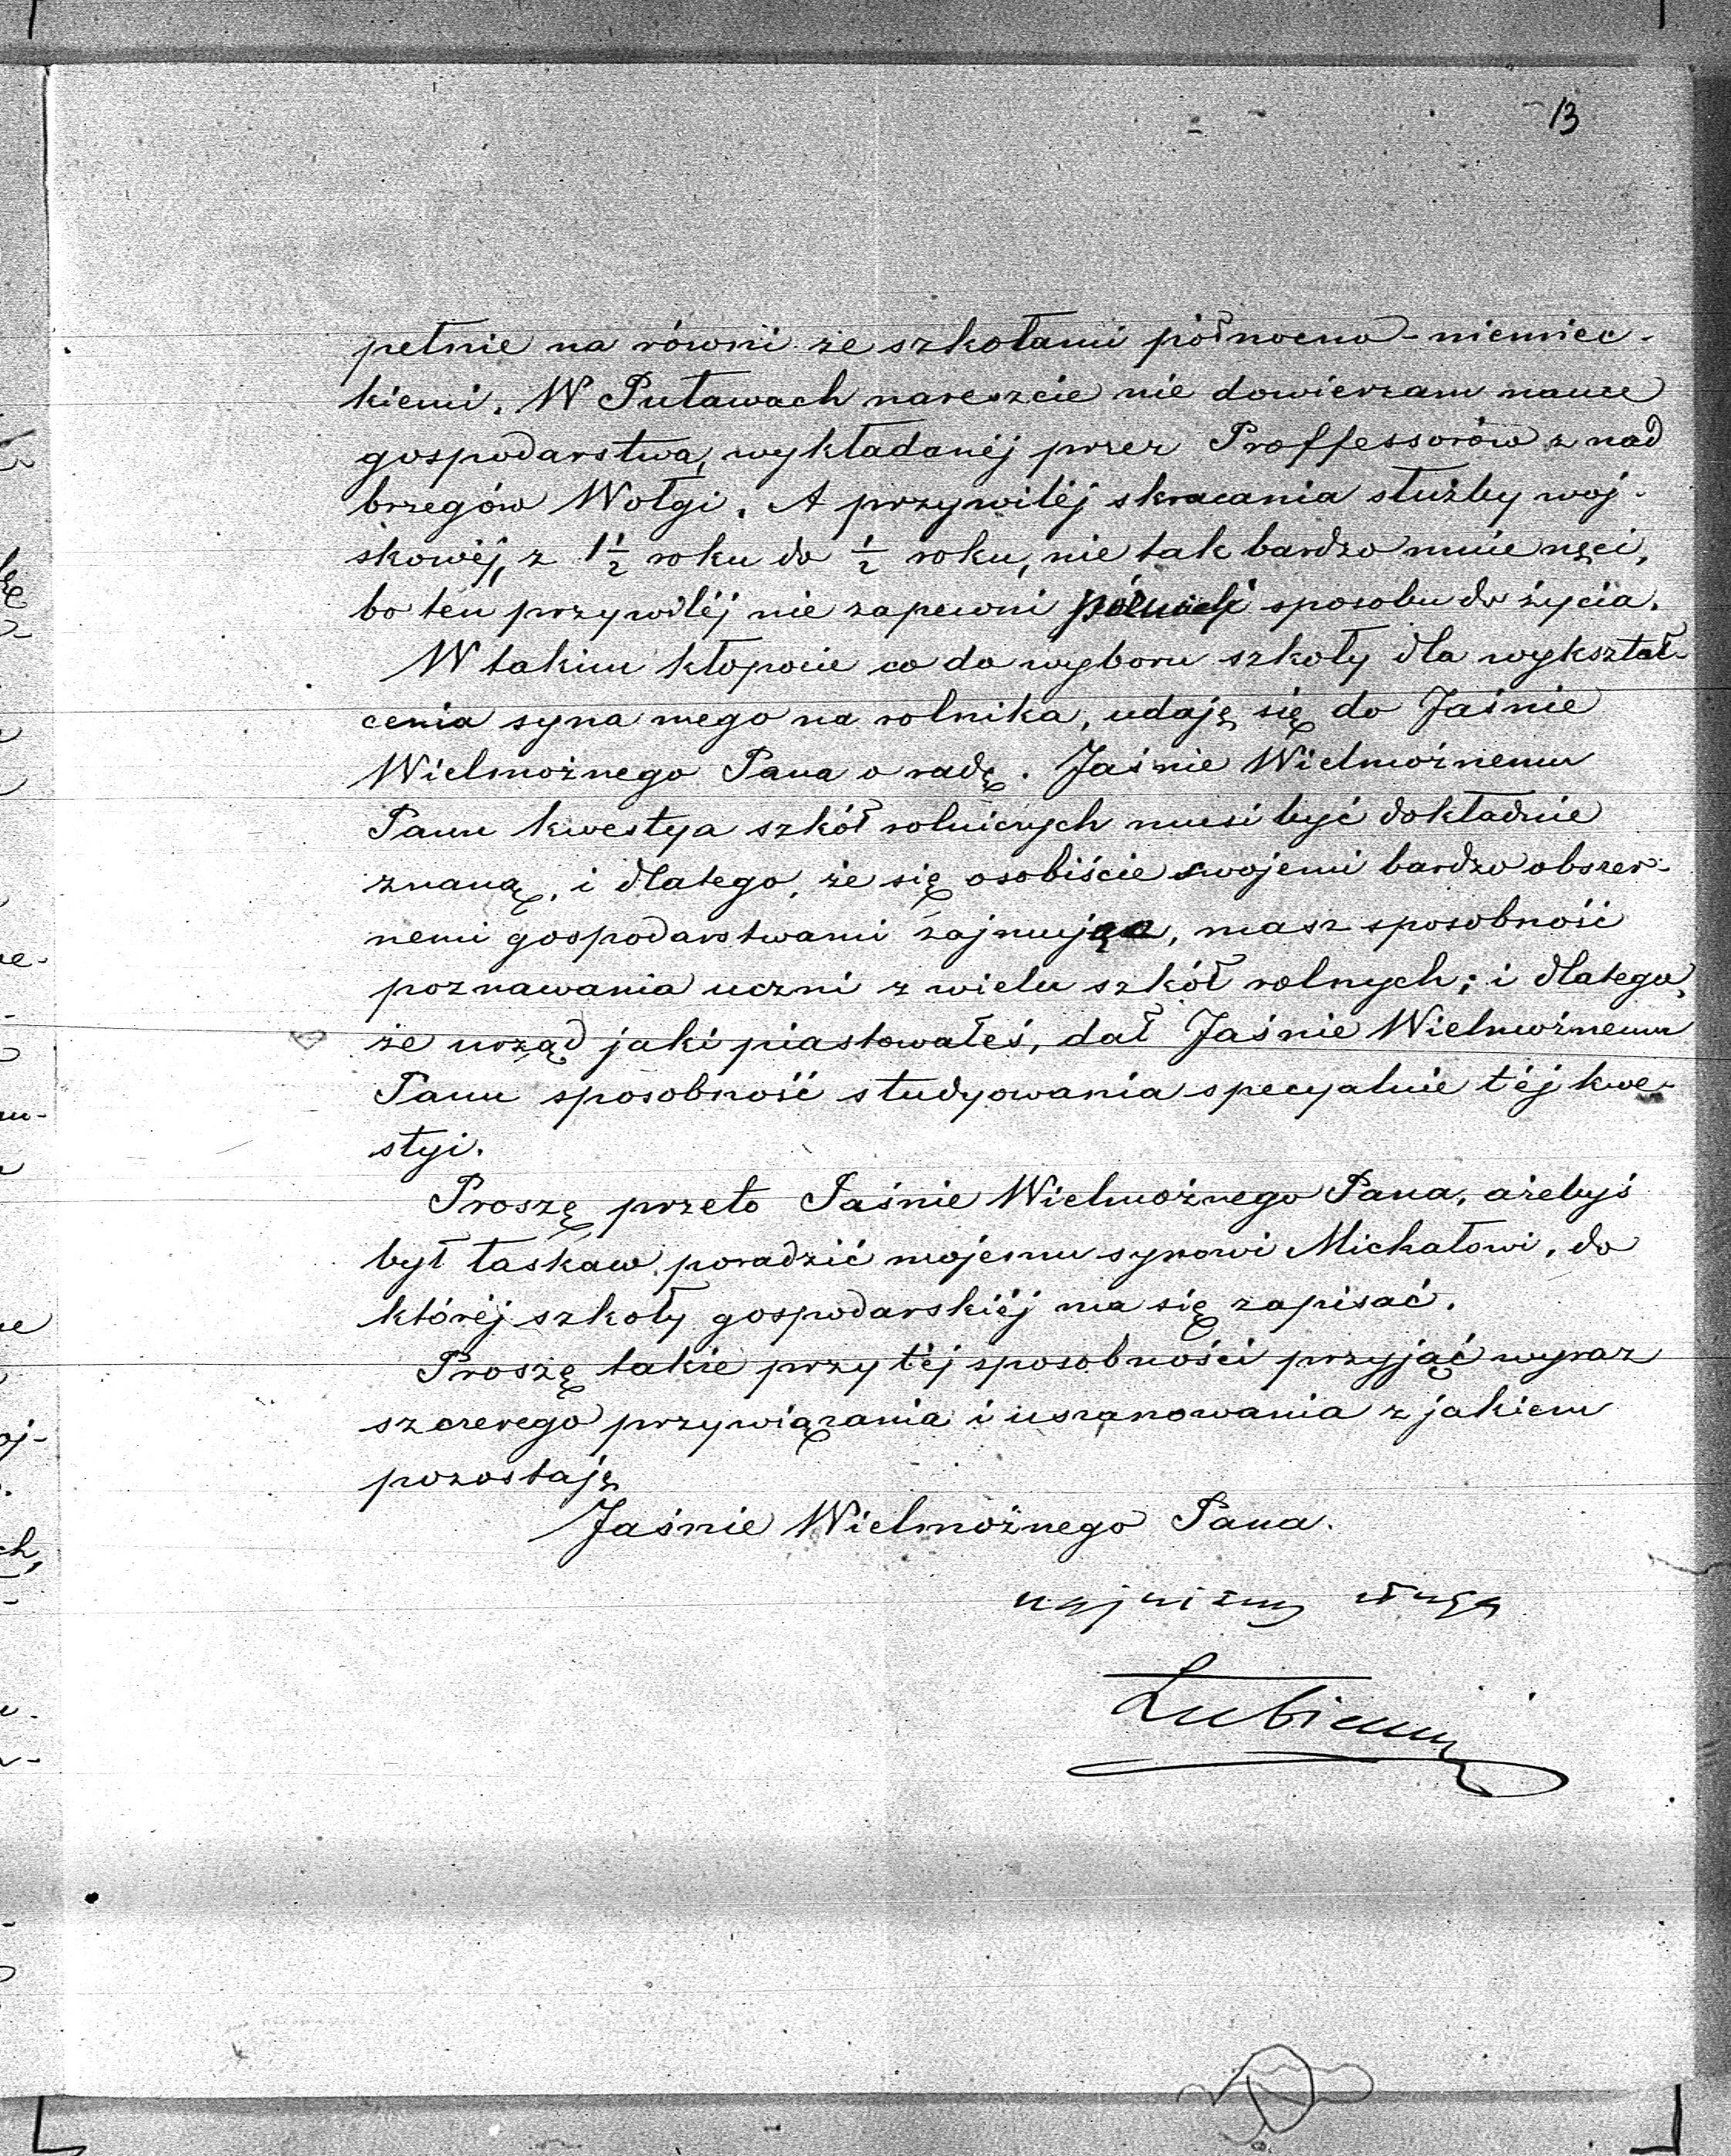 13
pełnie na równi ze szkołami północno-niemiec-
kiemi. W Puławach nareszcie nie dowierzam nauce
gospodarstwa, wykładanéj przez Proffessorów z nad
brzegów Wołgi. A przywiléj skracania służby woj-
skowéj, z 1½ roku do ½ roku, nie tak bardzo mnie nęci,
bo ten przywiléj nie zapewni późniéj sposobu do życia.
W takim kłopocie co do wyboru szkoły dla wykształ-
cenia syna mego na rolnika, udaję się do Jaśnie
Wielmożnego Pana o radę. Jaśnie Wielmożnemu
Panu kwestya szkół rolniczych musi być dokładnie
znaną, i dlatego, że się osobiście swojemi bardzo obszer-
nemi gospodarstwami zajmując, masz sposobność
poznawania uczni z wielu szkół rolnych; i dlatego,
że urząd jaki piastowałeś, dał Jaśnie Wielmożnemu
Panu sposobność studyowania specyalnie téj kwe-
styi.
Proszę przeto Jaśnie Wielmożnego Pana, ażebyś
był łaskaw poradzić mojemu synowi Michałowi, do
któréj szkoły gospodarskiéj ma się zapisać.
Proszę także przy téj sposobności przyjąć wyraz
szczerego przywiązania i uszanowania z jakiem
pozostaję
Jaśnie Wielmożnego Pana.
najniższy sługa
Łubieński